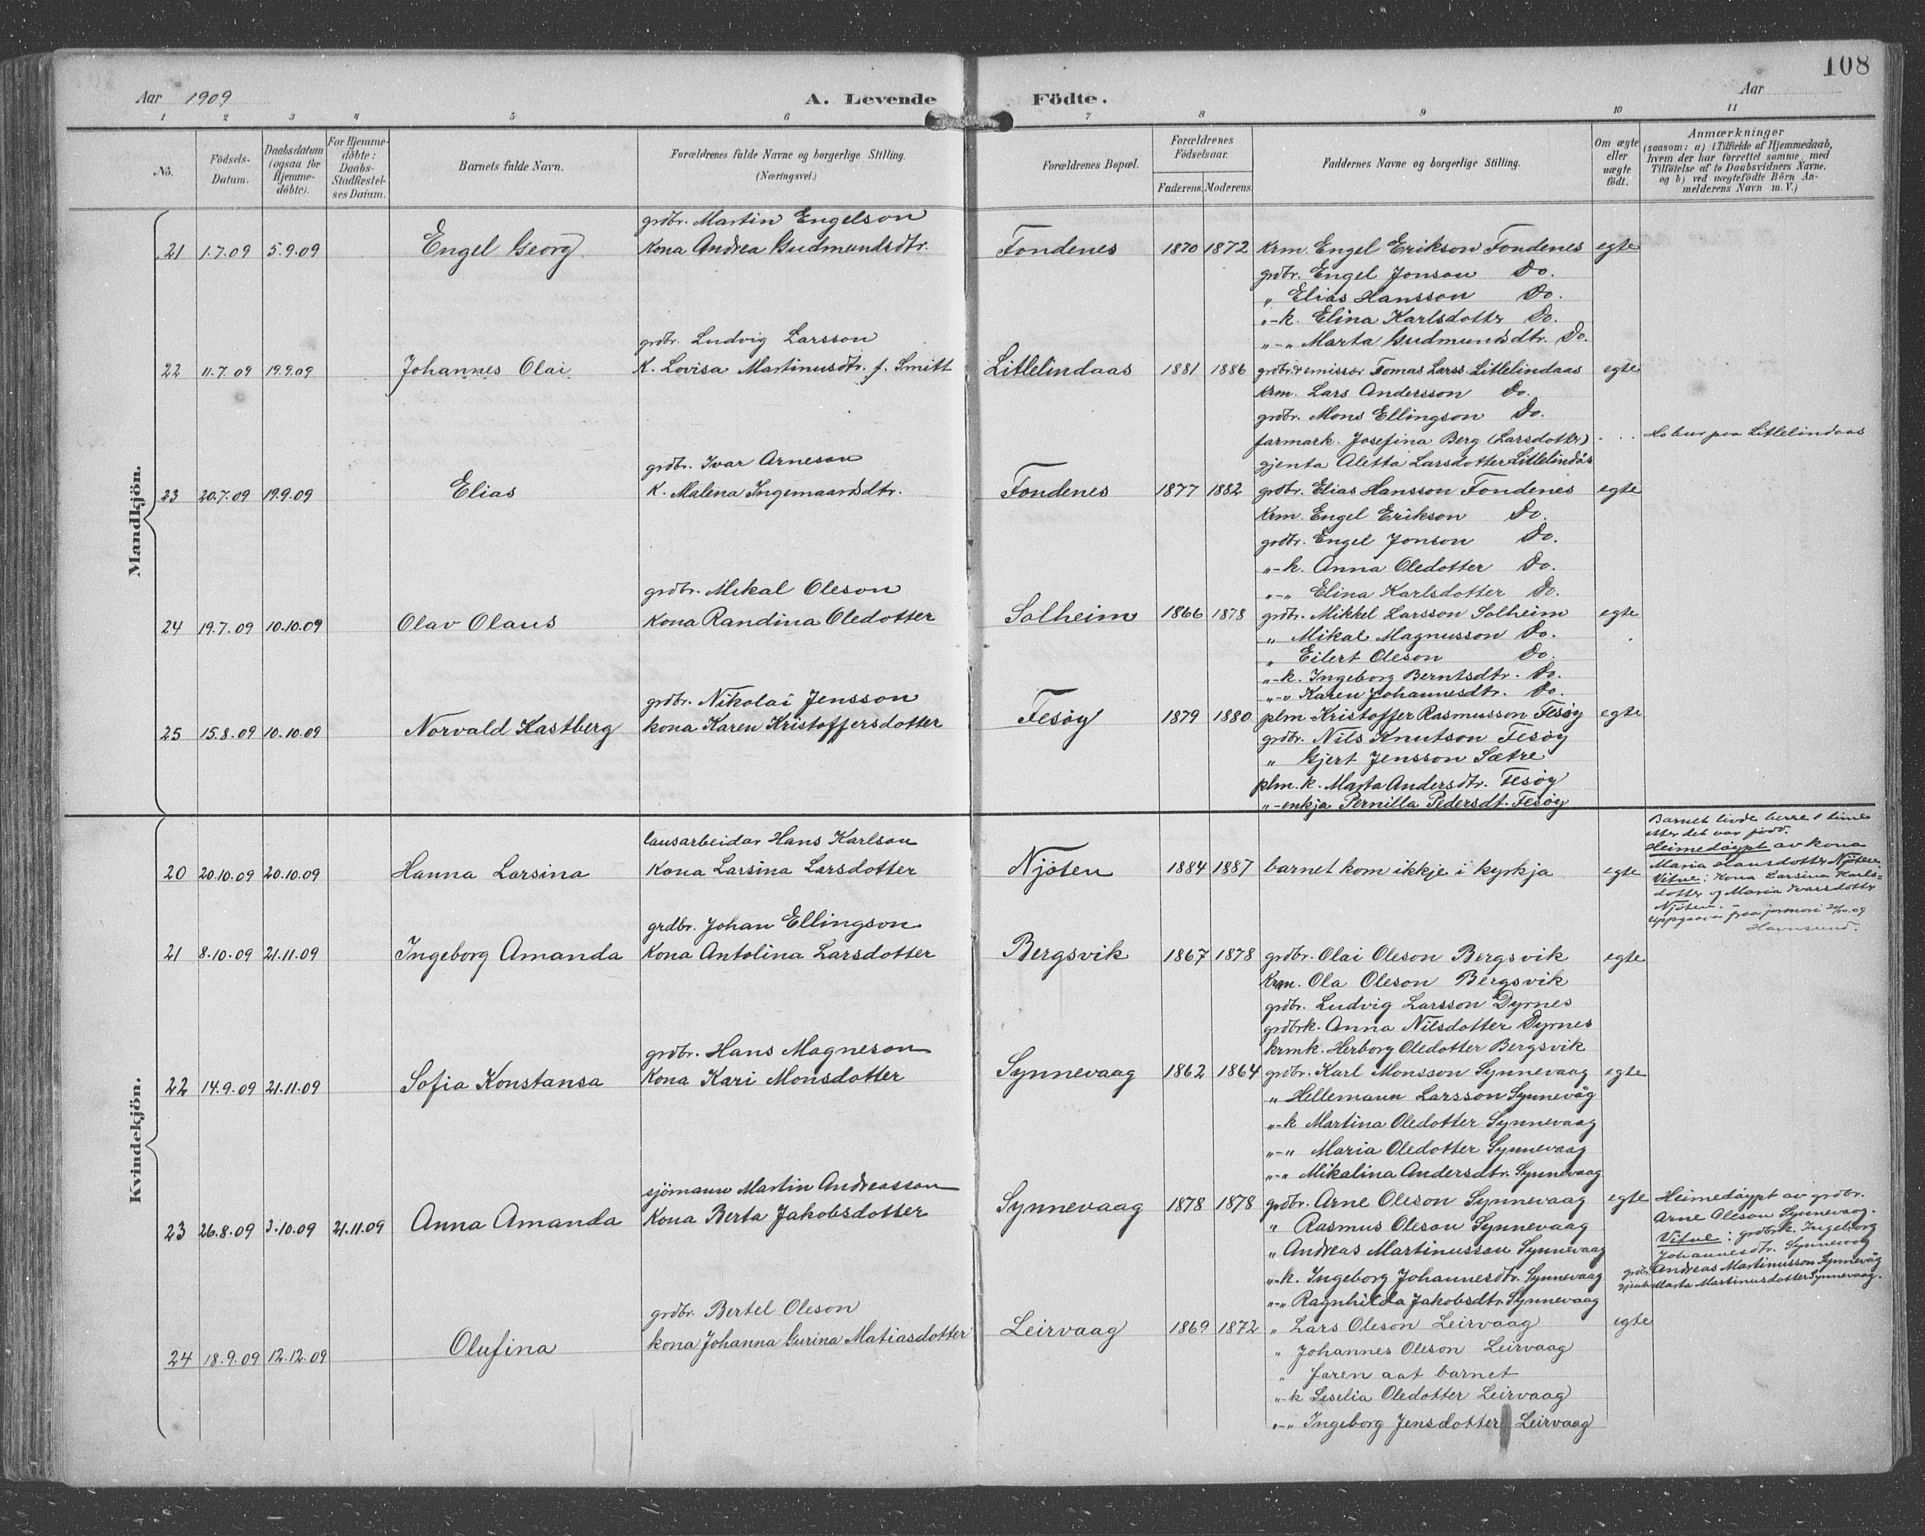 108
Aar 1909
A. Levende Födte.
Aar
1 2 3 4 5 6 7 8 9 10 11
No.
Födsels-Datum.
Daabsdatum (ogsaa for Hjemme-döbte).
For Hjemme-döbte: Daabs-Stadfæstel-ses Datum.
Barnets fulde Navn.
Forældrenes fulde Navne og borgerlige Stilling. (Næringsvei.)
Forældrenes Bopæl.
Forældrenes Födselsaar.
Faderens. Moderens.
Faddernes Navne og borgerlige Stilling.
Om ægte eller uægte födt.
Anmærkninger
(saasom: a) i Tilfælde af Hjemmedaab, hvem der har forrettet samme, med Tilföielse af to Daabsvidners Navne, og b) ved uægtefödte Börn An-melderens Navn m. V.)
Mandkjön.
grdbr. Martin Engelson
21 1.7.09 5.9.09 Engel Georg Kona Andrea Gudmundsdtr. Fondenes 1870 1872 Krm. Engel Erikson Fondenes egte
grdbr. Engel Jonson Do.
„ Elias Hansson Do.
„-k. Elina Karlsdottr Do.
„-„ Marta Gudmundsdtr. Do.
grdbr. Ludvig Larsson
22 11.7.09 19.9.09 Johannes Olai K. Lovisa Martinusdtr. f. Smitt Litlelindaas 1881 1886 grdbr. & emissær Tomas Larss. Litlelindaas egte
Krm. Lars Andersson Do.
grdbr. Mons Ellingson Do.
farmark. Josefina Berg (Larsdottr) paa Litlelindaas
gjenta Aletta Larsdotter Litlelindås
grdbr. Ivar Arneson
23 20.7.09 19.9.09 Elias K. Malena Ingemaarsdtr. Fondenes 1877 1882 grdbr. Elias Hansson Fondenes egte
Krm. Engel Erikson Do.
grdbr. Engel Jonson Do.
„-k. Anna Oledotter Do.
„-„ Elina Karlsdotter Do.
grdbr. Mikal Oleson
24 19.7.09 10.10.09 Olav Olaus Kona Randina Oledotter Solheim 1866 1878 grdbr. Mikkel Larsson Solheim egte
„ Mikal Magnusson Do.
„ Eilert Oleson Do.
„-k. Ingeborg Berntsdtr. Do.
„-„ Karen Johannesdtr. Do.
grdbr. Nikolai Jensson
25 15.8.09 10.10.09 Norvald Kastberg kona Karen Kristoffersdotter Fesøy 1879 1880 plm Kristoffer Rasmusson Fesøy egte
grdbr. Nils Knutson Fesøy
„ Gjert Jensson Sætre
plm. k. Marta Andersdtr. Fesøy
„-enkja Pernilla Pedersdt. Fesøy
Kvindekjön.
lausarbeidar Hans Karlson
20 20.10.09 20.10.09 Hanna Larsina Kona Larsina Larsdotter Njöten 1884 1887 barnet kom ikkje i kyrkja egte
Barnet livde berre 1 time
etter det var född.
Heimedøypt av kona
Maria Hansdotter Njöten.
Vitne: Kona Larsina Karls-
dotter og Maria Ivarsdotter
Njöten.
Uppgaava fraa jormori 20/10.09
Havnsund.
grdbr. Johan Ellingson
21 8.10.09 21.11.09 Ingeborg Amanda Kona Antolina Larsdotter Bergsvik 1867 1878 grdbr. Olai Oleson Bergsvik egte
Krm. Ola Oleson Bergsvik
grdbr. Ludvig Larsson Dyrnes
grdbrk. Anna Nilsdotter Dyrnes
krmk. Herborg Oledotter Bergsvik
grdbr. Hans Magneson
22 14.9.09 21.11.09 Sofia Konstansa Kona Kari Monsdotter Synnevaag 1862 1864 grdbr. Karl Monsson Synnevaag egte
„ Hellemann Larsson Synnevåg
„-k Martina Oledotter Synnevaag
„-„ Maria Oledotter Synnevaag
„-„ Mikalina Andersdtr. Synnevaag
sjömann Martin Andreasson
23 26.8.09 3.10.09 21.11.09 Anna Amanda Kona Berta Jakobsdotter Synnevaag 1878 1878 grdbr. Arne Oleson Synnevaag egte
„ Rasmus Oleson Synnevaag
„ Andreas Martinusson Synnevaag
„-k. Ingeborg Johannesdtr. Synnevaag
„-„ Ragnhilda Jakobsdtr. Synnevaag
Heimedøypt av grdbr.
Arne Oleson Synnevaag.
Vitne: grdbrk. Ingeborg
Johannesdtr. Synnevaag
grdbr. Andreas Martinusson Synnevåg
gjenta Marta Martinusdotter Synnevaag.
grdbr. Bertel Oleson
24 18.9.09 12.12.09 Olufina kona Johanna Gurina Matiasdotter Leirvaag 1869 1872 „ Lars Oleson Leirvaag egte
„ Johannes Oleson Leirvaag
„ faren aat barnet
„-k Seselia Oledotter Leirvaag
„-„ Ingeborg Jensdotter Leirvaag